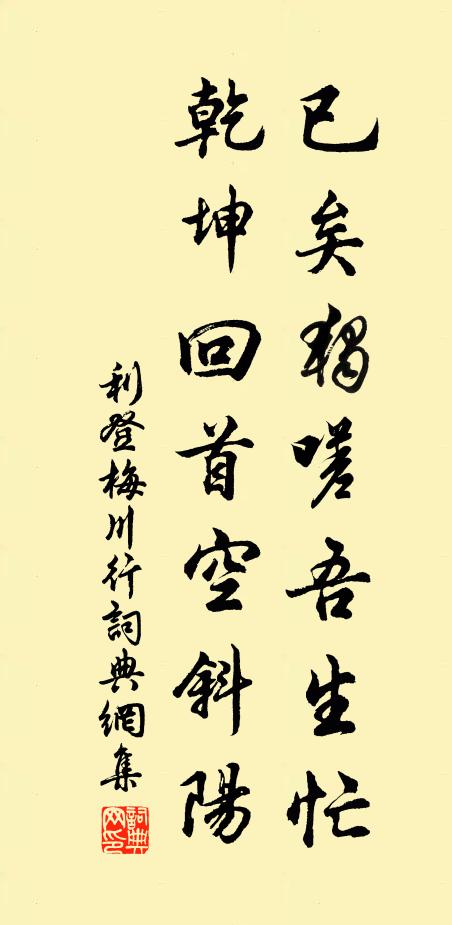 已矣獨嗟吾生忙
乾坤回首空斜陽
利登梅川行詞典網集
詞典
网印